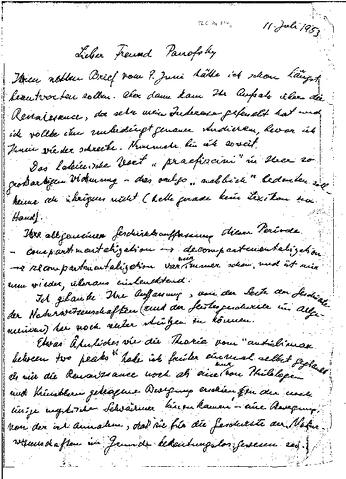 11. Juli 1953
Lieber Freund Panofsky
Ihren netten Brief vom 9. Juni hätte ich schon längst
beantworten sollen. Aber dann kam Ihr Aufsatz über die
Renaissance, der sehr mein Interesse gefunden hat und
ich wollte ihn unbedingt genau studieren, bevor ich
Ihnen wieder schreibe. Nunmehr bin ich soweit.
Das lateinische Wort "praefiscini" in Ihrer so
grossartigen Widmung – das "wohl
keine als übrigens nicht (habe gerade kein Lexikon zur
Hand).
Ihre allgemeine Geschichtsauffassung dieser Periode
– compartmentalization → decompartmentalization
→ recompartmentalization war immer schon, und ist mir
nun wieder, überaus einleuchtend.
Ich glaube Ihre Auffassung, von der Seite der Geschichte
der Naturwissenschaften (und der Geistesgeschichte im Allge-
meinen) her noch weiter stützen zu können.
Etwas Ähnliches wie die Theorie vom "anticlimax
between two peaks" habe ich früher einmal selbst geglaubt
als mir die Renaissance noch als eine von Philologen
und Künstlern getragene Bewegung erschien, zu der noch
einige mystische Schwärmer hinzukamen – eine Bewegung,
von der ich annahm, daß sie für die Geschichte der Natur-
wissenschaften im Grunde bedeutungslos gewesen sei.